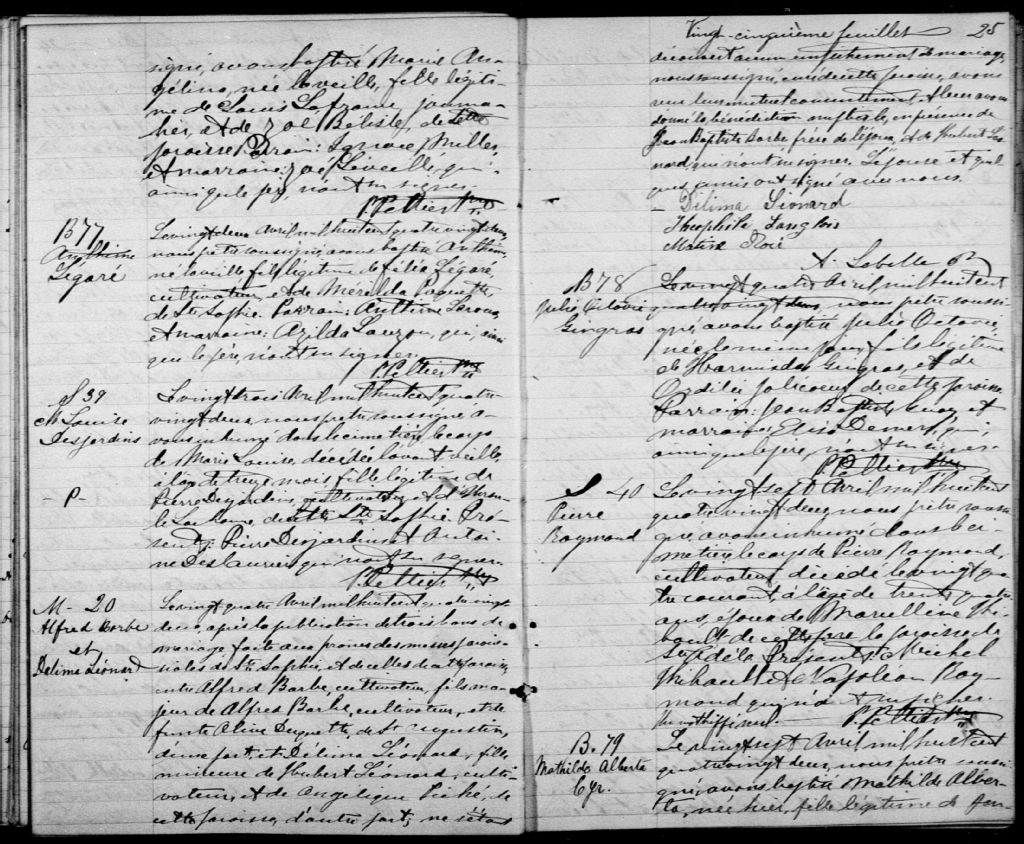 signé, avons baptisé Marie An-
gélina, née la veille, fille légiti-
me de Louis Lafrance, journa-
lier, et de Zoé Bélisle, de cette
paroisse. Parrain: Ignace Miller,
et marraine: Zoé Léveillé, qui
ainsi que le père, n'ont su signer.
P. Peltier Ptre
B 77
Anthime
Légaré
Le vingt deux Avril mil huit cent quatre vingt deux,
nous prêtre soussigné, avons baptisé Anthime,
né la veille, fils légitime de Légaré,
cultivateur, et de Mérilda Paquette,
de Ste Sophie. Parrain: Anthime Leroux,
et marraine: Azilda Lauzon, qui, ainsi
que le père, n'ont su signer.
P. Peltier Ptre
S 39
M. Louise
Desjardins
- P -
Le vingt trois Avril mil huit cent quatre
vingt deux, nous prêtre soussigné a-
vons inhumé dans le cimetière le corps
de Marie Louise, décédée l'avant veille,
à l'âge de treize mois, fille légitime de
Pierre Desjardins, cultivateur, et d'
de Ste Sophie. Pré-
sents: Pierre Desjardins et Antoi-
ne Deslauriers qui n'ont su signer.
P. Peltier Ptre
M - 20
Alfred Barbe
et
Délima Léonard
Le vingt quatre Avril mil huit cent quatre vingt
deux, après la publication de trois bans de
mariage faite aux prônes des messes parois-
siales de Ste Sophie, et de celles de cette paroisse,
entre Alfred Barbe, cultivateur, fils ma-
jeur de Alfred Barbe, cultivateur, et de
feue Alive Duquette, de St Augustin,
d'une part; et Délima Léonard, fille
mineure de Hubert Léonard, culti-
vateur, et de Angélique Piché, de
cette paroisse, d'autre part; ne s'étant
Vingt-cinquième feuillet 25
découvert aucun empêchement de mariage,
nous soussigné, curé de cette paroisse, avons
reçu leur mutuel consentement et leur avons
donné la bénédiction nuptiale, en présence de
Jean Baptiste Barbe frère de l'époux, et de Hubert Lé-
onard, qui n'ont su signer. L'épouse et quel-
ques amis ont signé avec nous.
- Délima Léonard
Théophile Langlois
Matise Roié
A. Labelle P
B 78
Julie Octavie
Gingras
Le vingt quatre Avril mil huit cent
quatre vingt deux, nous prêtre soussi-
gné, avons baptisé Julie Octavie,
née le même jour, fille légitime
de Harmisdas Gingras, et de
Ozélie Jolicoeur de cette paroisse.
Parrain: Jean Baptiste et
marraine: Elise Demers, qui,
ainsi que le père, n'ont su signer.
P. Peltier Ptre
S 40
Pierre
Raymond
Le vingt sept Avril mil huit cent
quatre vingt deux, nous prêtre soussi-
gné, avons inhumé dans le ci-
metière le corps de Pierre Raymond,
cultivateur, décédé le vingt qua-
tre courant à l'âge de trente quatre
ans, époux de Marcelline Thi-
bault de la paroisse de
Ste Adèle. Présents: Michel
Thibault et Napoléon Ray-
mond qui n'ont su signer.
P. Peltier Ptre
B. 79
Mathilde Alberta
Cyr.
Le vingt sept Avril mil huit cent
quatre vingt deux, nous prêtre soussi-
gné, avons baptisé Mathilde Alber-
ta, née hier, fille légitime de